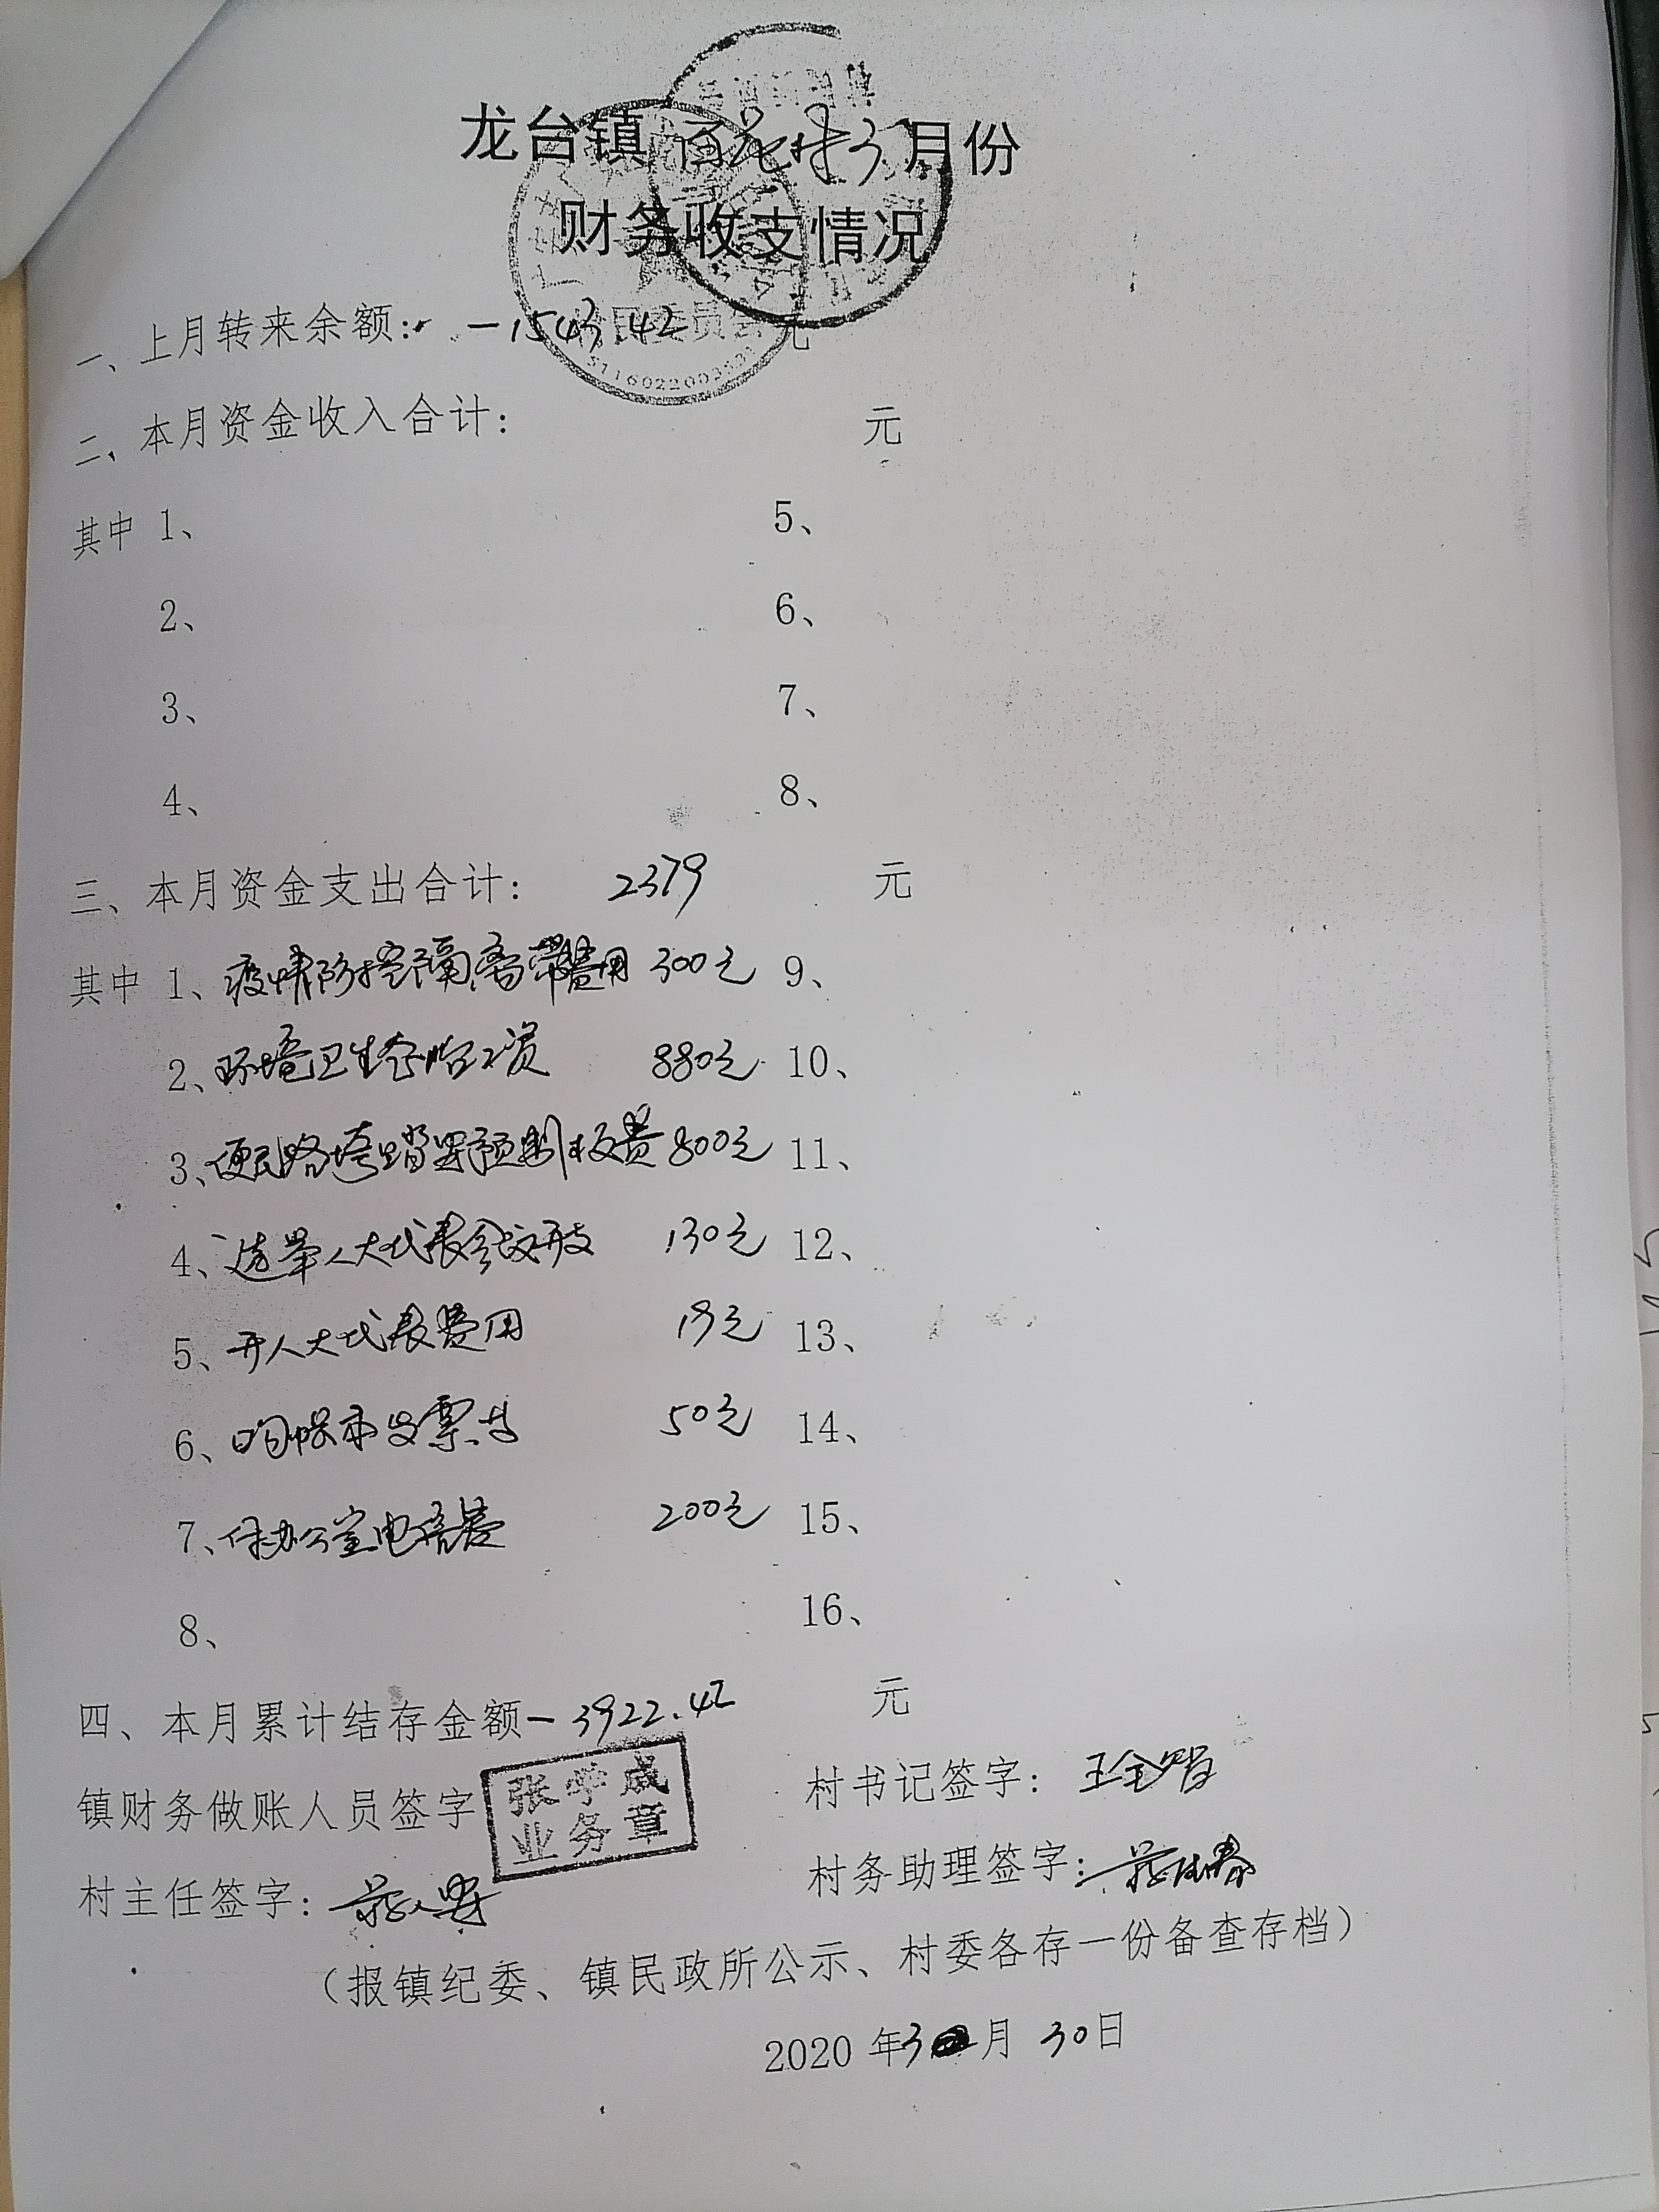 龙台镇百花村3月份
财务收支情况
村民委员会
一、上月转来余额: -1543.42 元
二、本月资金收入合计: 元
其中 1、 5、
2、 6、
3、 7、
4、 8、
三、本月资金支出合计: 2379 元
其中 1、疫情防控隔离带费用 300元 9、
2、环境卫生 工资 880元 10、
3、便民路垮踏 预制板费 800元 11、
4、选举人大代表会议开支 130元 12、
5、开人大代表费用 19元 13、
6、 发票 50元 14、
7、村办公室电话费 200元 15、
8、 16、
四、本月累计结存金额 -3922.42 元
镇财务做账人员签字 张学成 村书记签字: 王全
业务章
村主任签字: 村务助理签字:
(报镇纪委、镇民政所公示、村委各存一份备查存档)
2020 年3月 30日